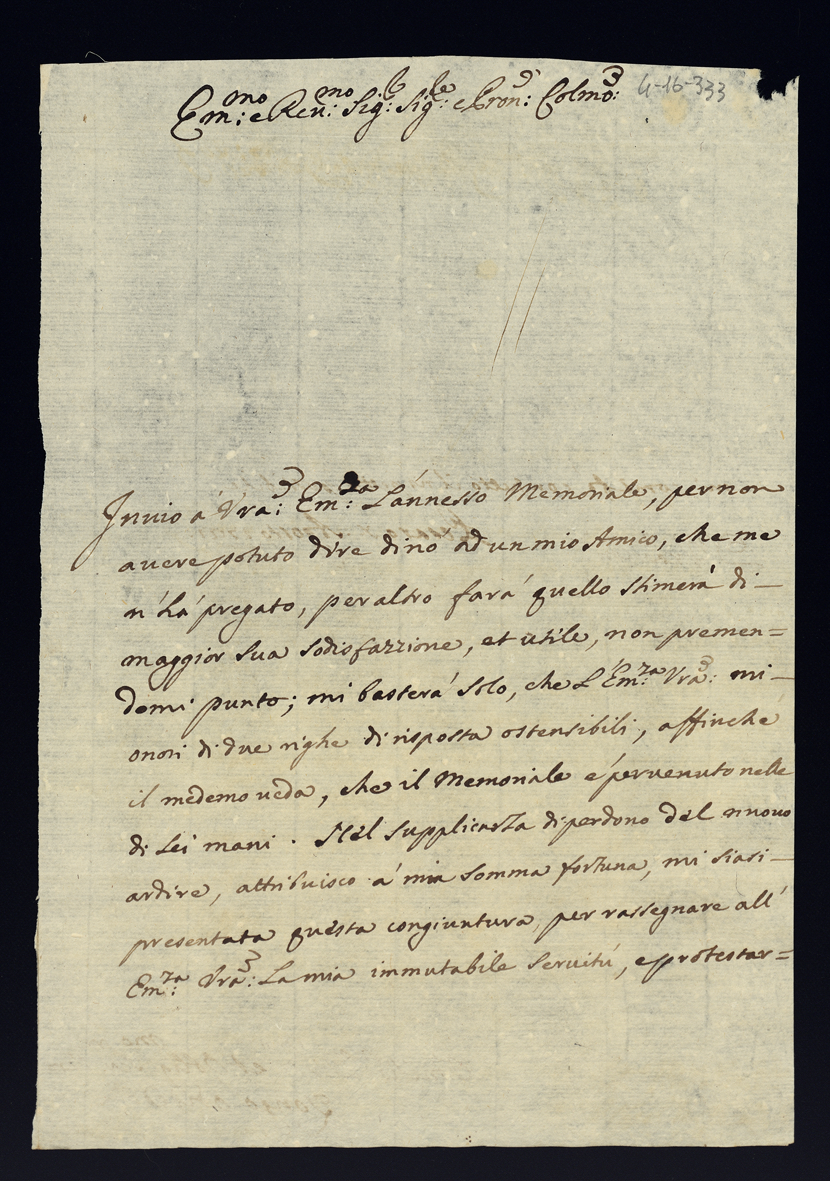 Em:mo e Reu:mo Sig:r Sig:re e Pron: Colmo:
4-16-333
Inuio á Vra: Em:za L'annesso Memoriale, per non
auere potuto dire di no ad un mio Amico, che me
n'há pregato, per altro fará quello stimerá di-
maggior sua sodisfazzione, et utile, non premen=
domi punto; mi basterá solo, che L'Em:za Vra: mi-
onori di due righe di risposta ostensibili, affinche
il medemo ueda, che il Memoriale é peruenuto nelle
di Lei mani. Nel supplicarLa di perdono del nuouo
ardire, attribuisco á mia somma fortuna, mi siasi-
presentata questa congiuntura, per rassegnare all'
Em:za Vra: La mia immutabile Seruitú, e protestar=